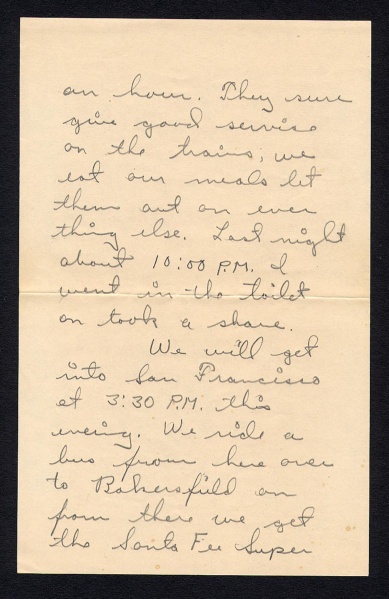 an hour. They sure
give good servise
on the trains, we
eat our meals let
them out on ever
thing else. Last night
about 10:00 P.M. I
went in the toilet
an took a shave.
We will get
into San Francisco
at 3:30 P.M. this
evening. We ride a
bus from here over
to Bakersfield an
from there we get
the Santa Fee Super